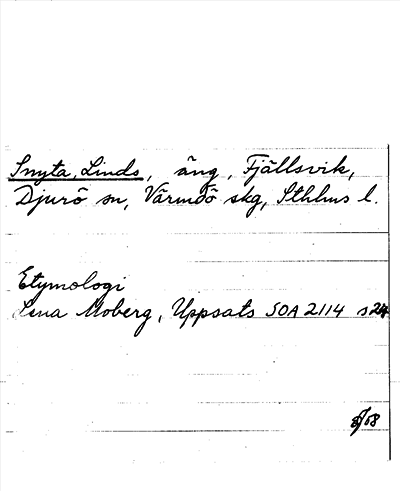 Snyta, Linds, äng, Fjällsvik,
Djurö sn, Värmdö skg, Sthlms l.
Etymologi
Lena Moberg, Uppsats SOA 2114 s 24
/68